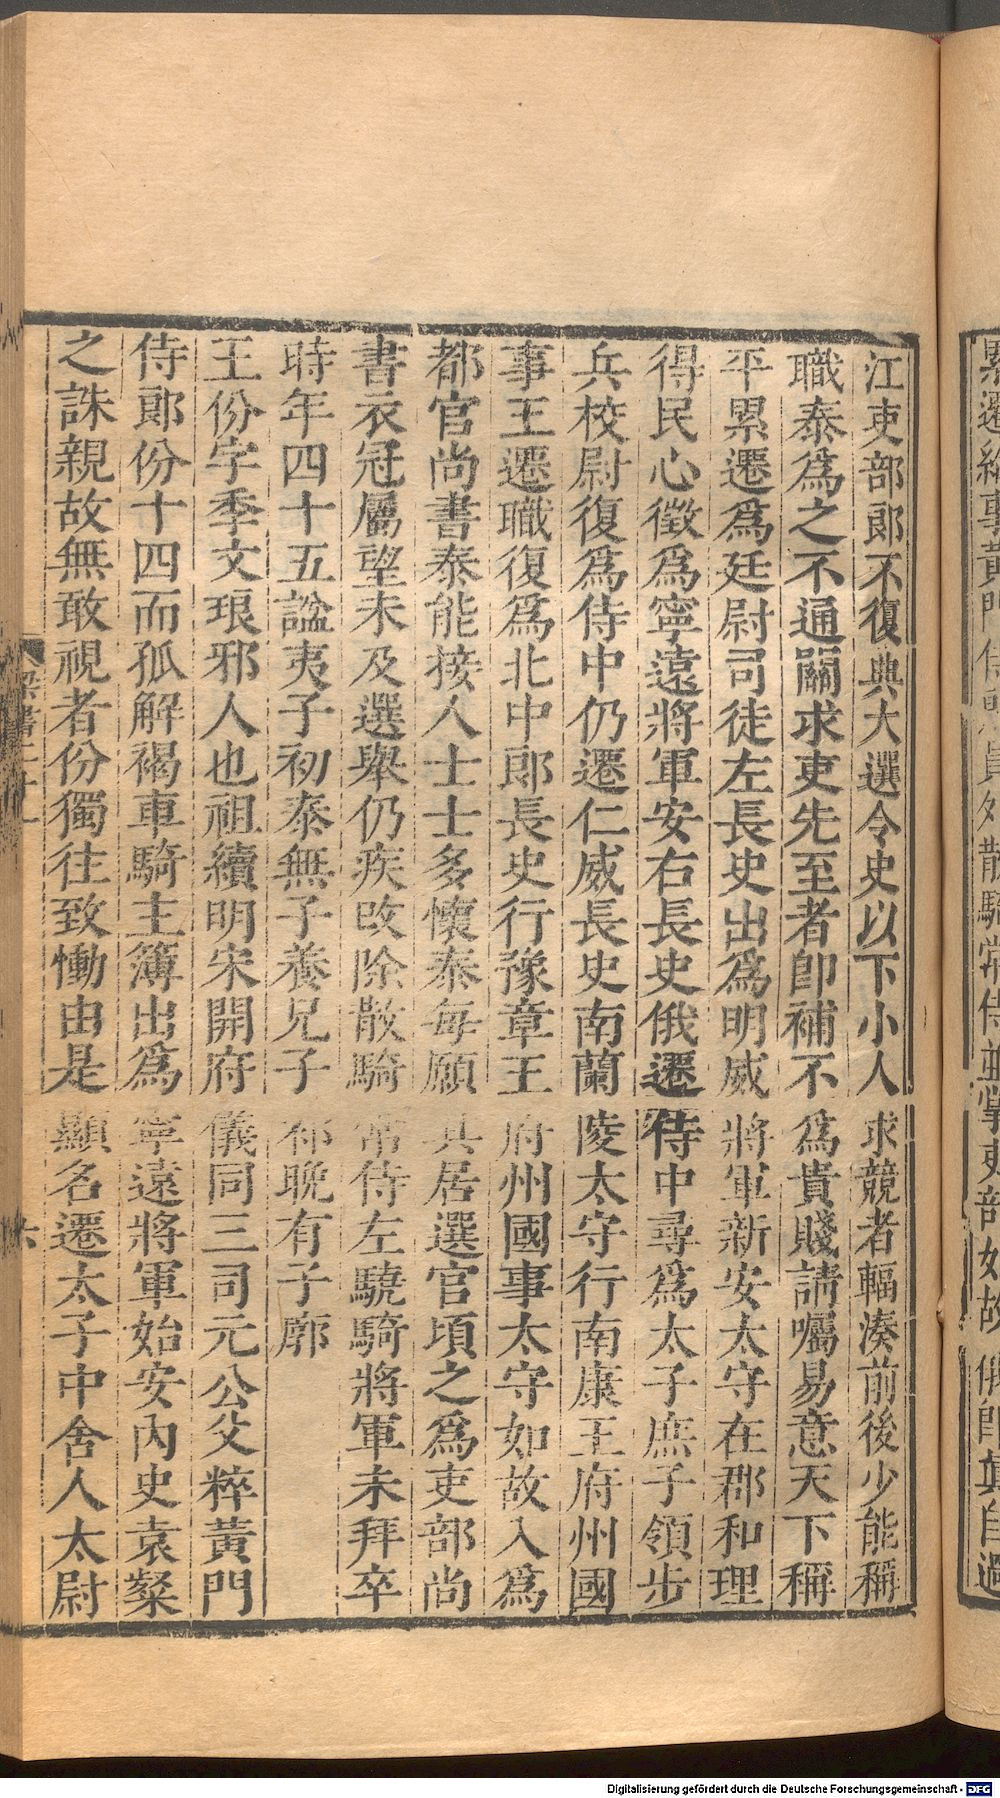 江吏部郎不復典大選令史以下小人求競者輻湊前後少能稱
職泰爲之不通關求吏先至者即補不爲貴賤請囑易意天下稱
平累遷爲廷尉司徒左長史出爲明威將軍新安太守在郡和理
得民心徵爲寧遠將軍安右長史俄遷侍中尋爲太子庶子領步
兵校尉復爲侍中仍遷仁威長史南蘭陵太守行南康王府州國
事王遷職復爲北中郎長史行豫章王府州國事太守如故入爲
都官尚書泰能接人士士多懷泰每願其居選官頃之爲吏部尚
書衣冠屬望未及選舉仍疾改除散騎常侍左驍騎將軍未拜卒
時年四十五諡夷子初泰無子養兄子祁晩有子廓
王份字季文琅邪人也祖續明宋開府儀同三司元公父粹黃門
侍郎份十四而孤解褐車騎主簿出爲寧遠將軍始安內史袁粲
之誅親故無敢視者份獨往致慟由是顯名遷太子中舍人太尉
梁書二十一
六
累遷給事黃門侍郎員外散騎常侍並掌吏部如故俄即眞自過
Digitalisierung gefördert durch die Deutsche Forschungsgemeinschaft - DFG